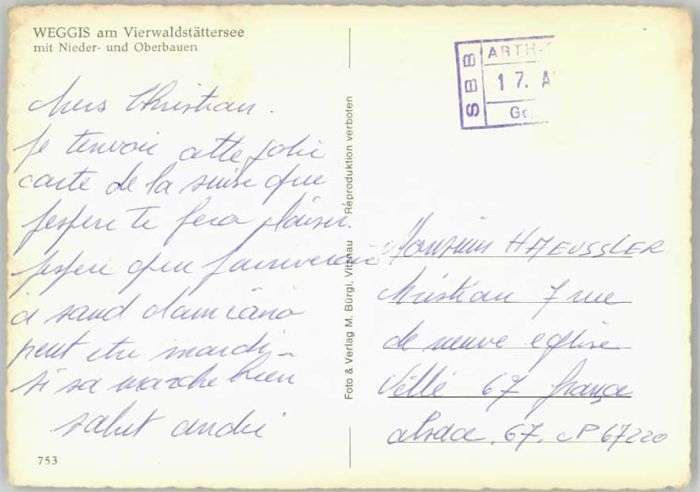 WEGGIS am Vierwaldstättersee
mit Nieder- und Oberbauen
chers Christian.
je tenvoie cette jolie
carte de la suise que
jespere te fera plaisir.
jespere que jariverai
a sand damiano
peut etre mardi -
si sa marche bien
salut andré
753
Foto & Verlag M. Bürgi, Vitznau Reproduktion verboten
SBB
ARTH-
17. A
Go
Monsieur HAEUSSLER
Christian 7 rue
de neuve eglise
Villé 67 france
alsace. 67. CP 67220